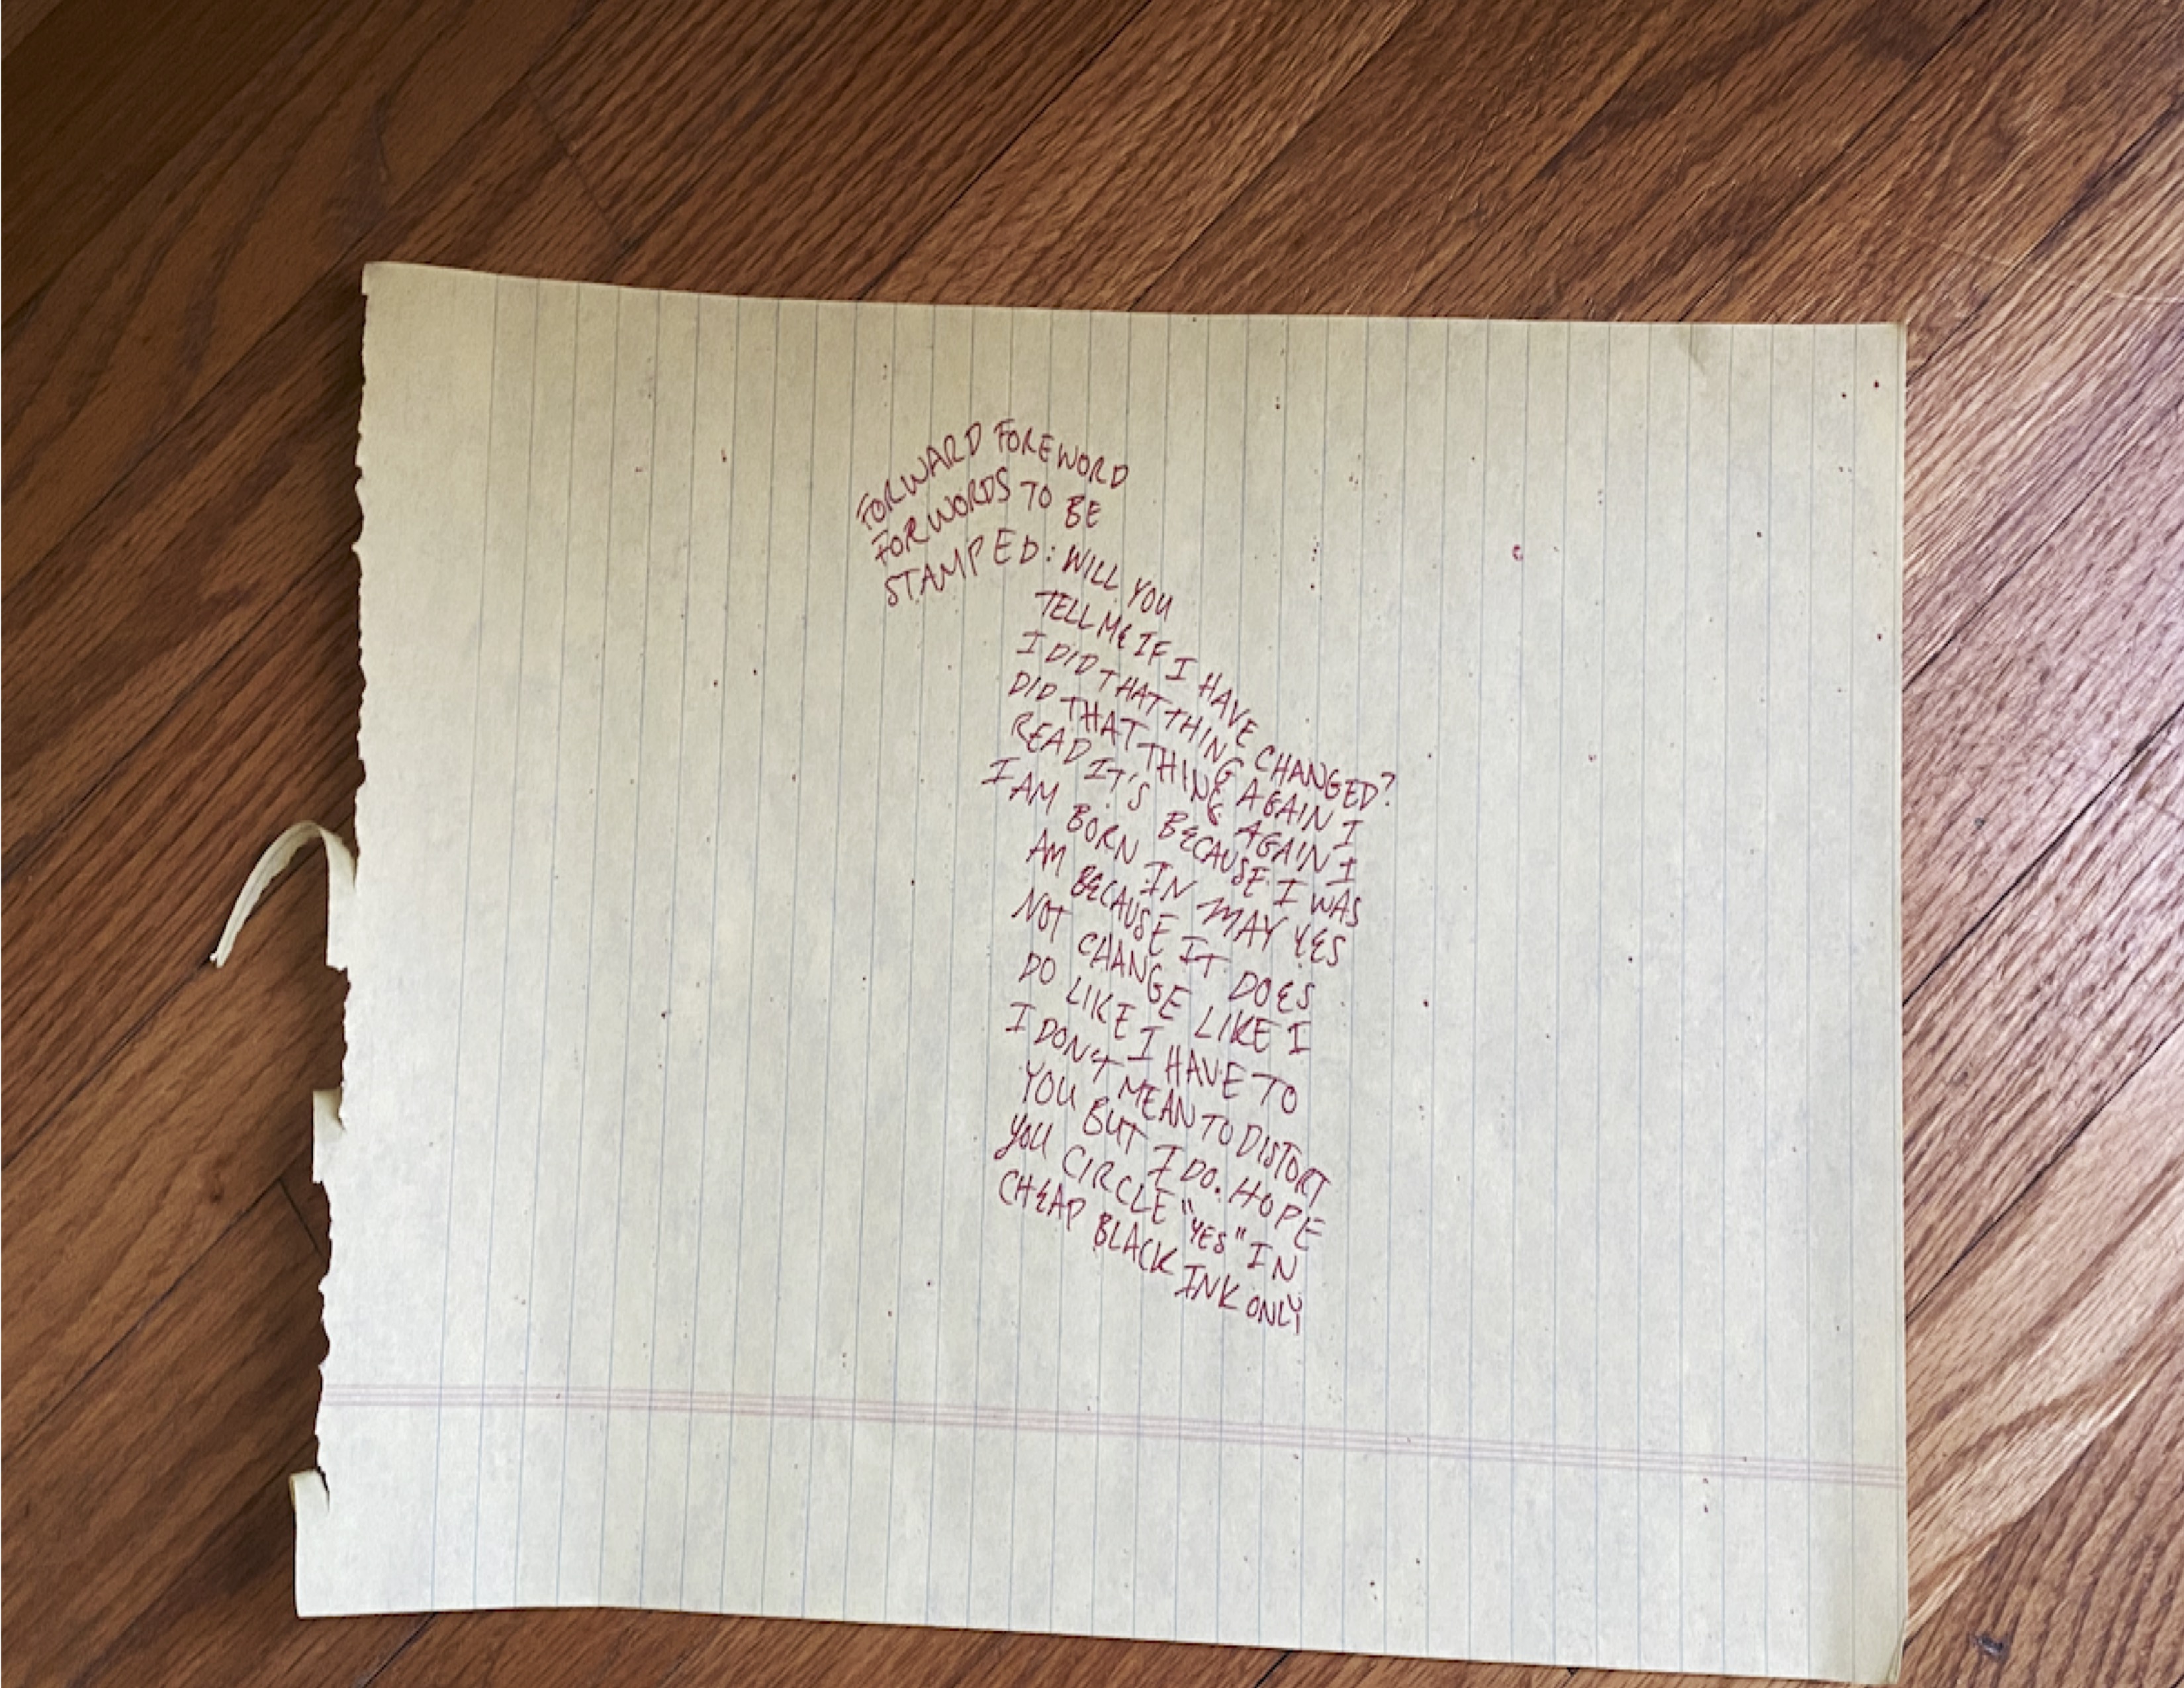 FORWARD FOREWORD
FORWORDS TO BE
STAMPED: WILL YOU
TELL ME IF I HAVE CHANGED?
I DID THAT THING AGAIN I
DID THAT THING AGAIN I
READ IT'S BECAUSE I WAS
I AM BORN IN MAY YES
AM BECAUSE IT DOES
NOT CHANGE LIKE I
DO LIKE I HAVE TO
I DON'T MEAN TO DISTORT
YOU BUT I DO. HOPE
YOU CIRCLE "YES" IN
CHEAP BLACK INK ONLY